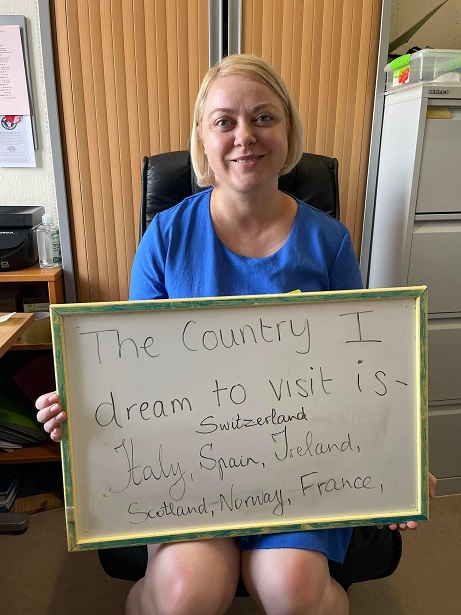 The Country I
dream to visit is-
Switzerland
Italy, Spain, Ireland,
Scotland, Norway, France,